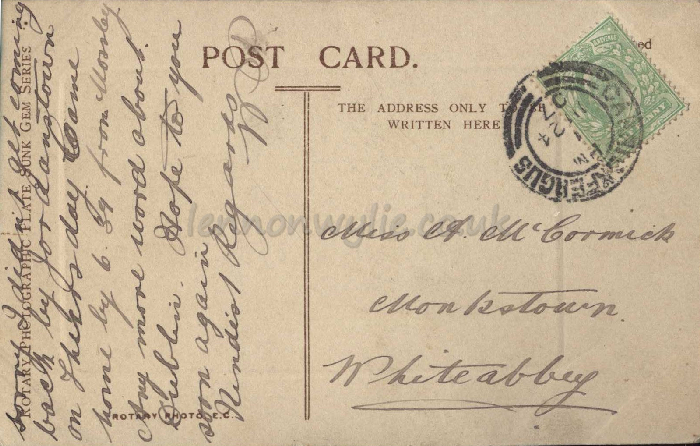 POST CARD.
THE ADDRESS ONLY TO BE
WRITTEN HERE
CARRICKFERGUS
ROTARY PHOTOGRAPHIC PLATE SUNK GEM SERIES
ROTARY PHOTO. E.C.
sorry I did not get coming
back by Jordanstown
on Thursday Came
home by 6.39 from Monday
Any more word about
Dublin. Hope to you
soon again
Kindest Regards
Miss A. McCormick
Monkstown.
Whiteabbey
lennonwylie.co.uk